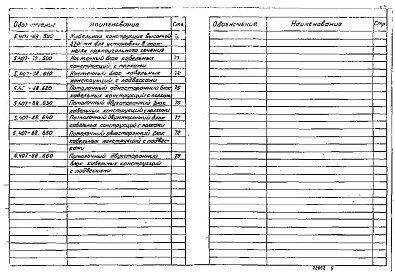 Обозначение Наименование Стр.
5.407-88.590 Кабельная конструкция высотой
220 мм для установки в тон-
неле прямоугольного сечения
5.407-88.600 Настенный блок кабельных
конструкций с полками
5.407-88.610 Настенный блок кабельных
конструкций с подвесками
5.407-88.620 Потолочный односторонний блок
кабельных конструкций с полками
5.407-88.630 Потолочный двухсторонний блок
кабельных конструкций с полками
5.407-88.640 Потолочный двухсторонний блок
кабельных конструкций с полками
5.407-88.650 Потолочный двухсторонний блок
кабельных конструкций с подвес-
ками
5.407-88.660 Потолочный двухсторонний
блок кабельных конструкций
с подвесками
Обозначение Наименование Стр.